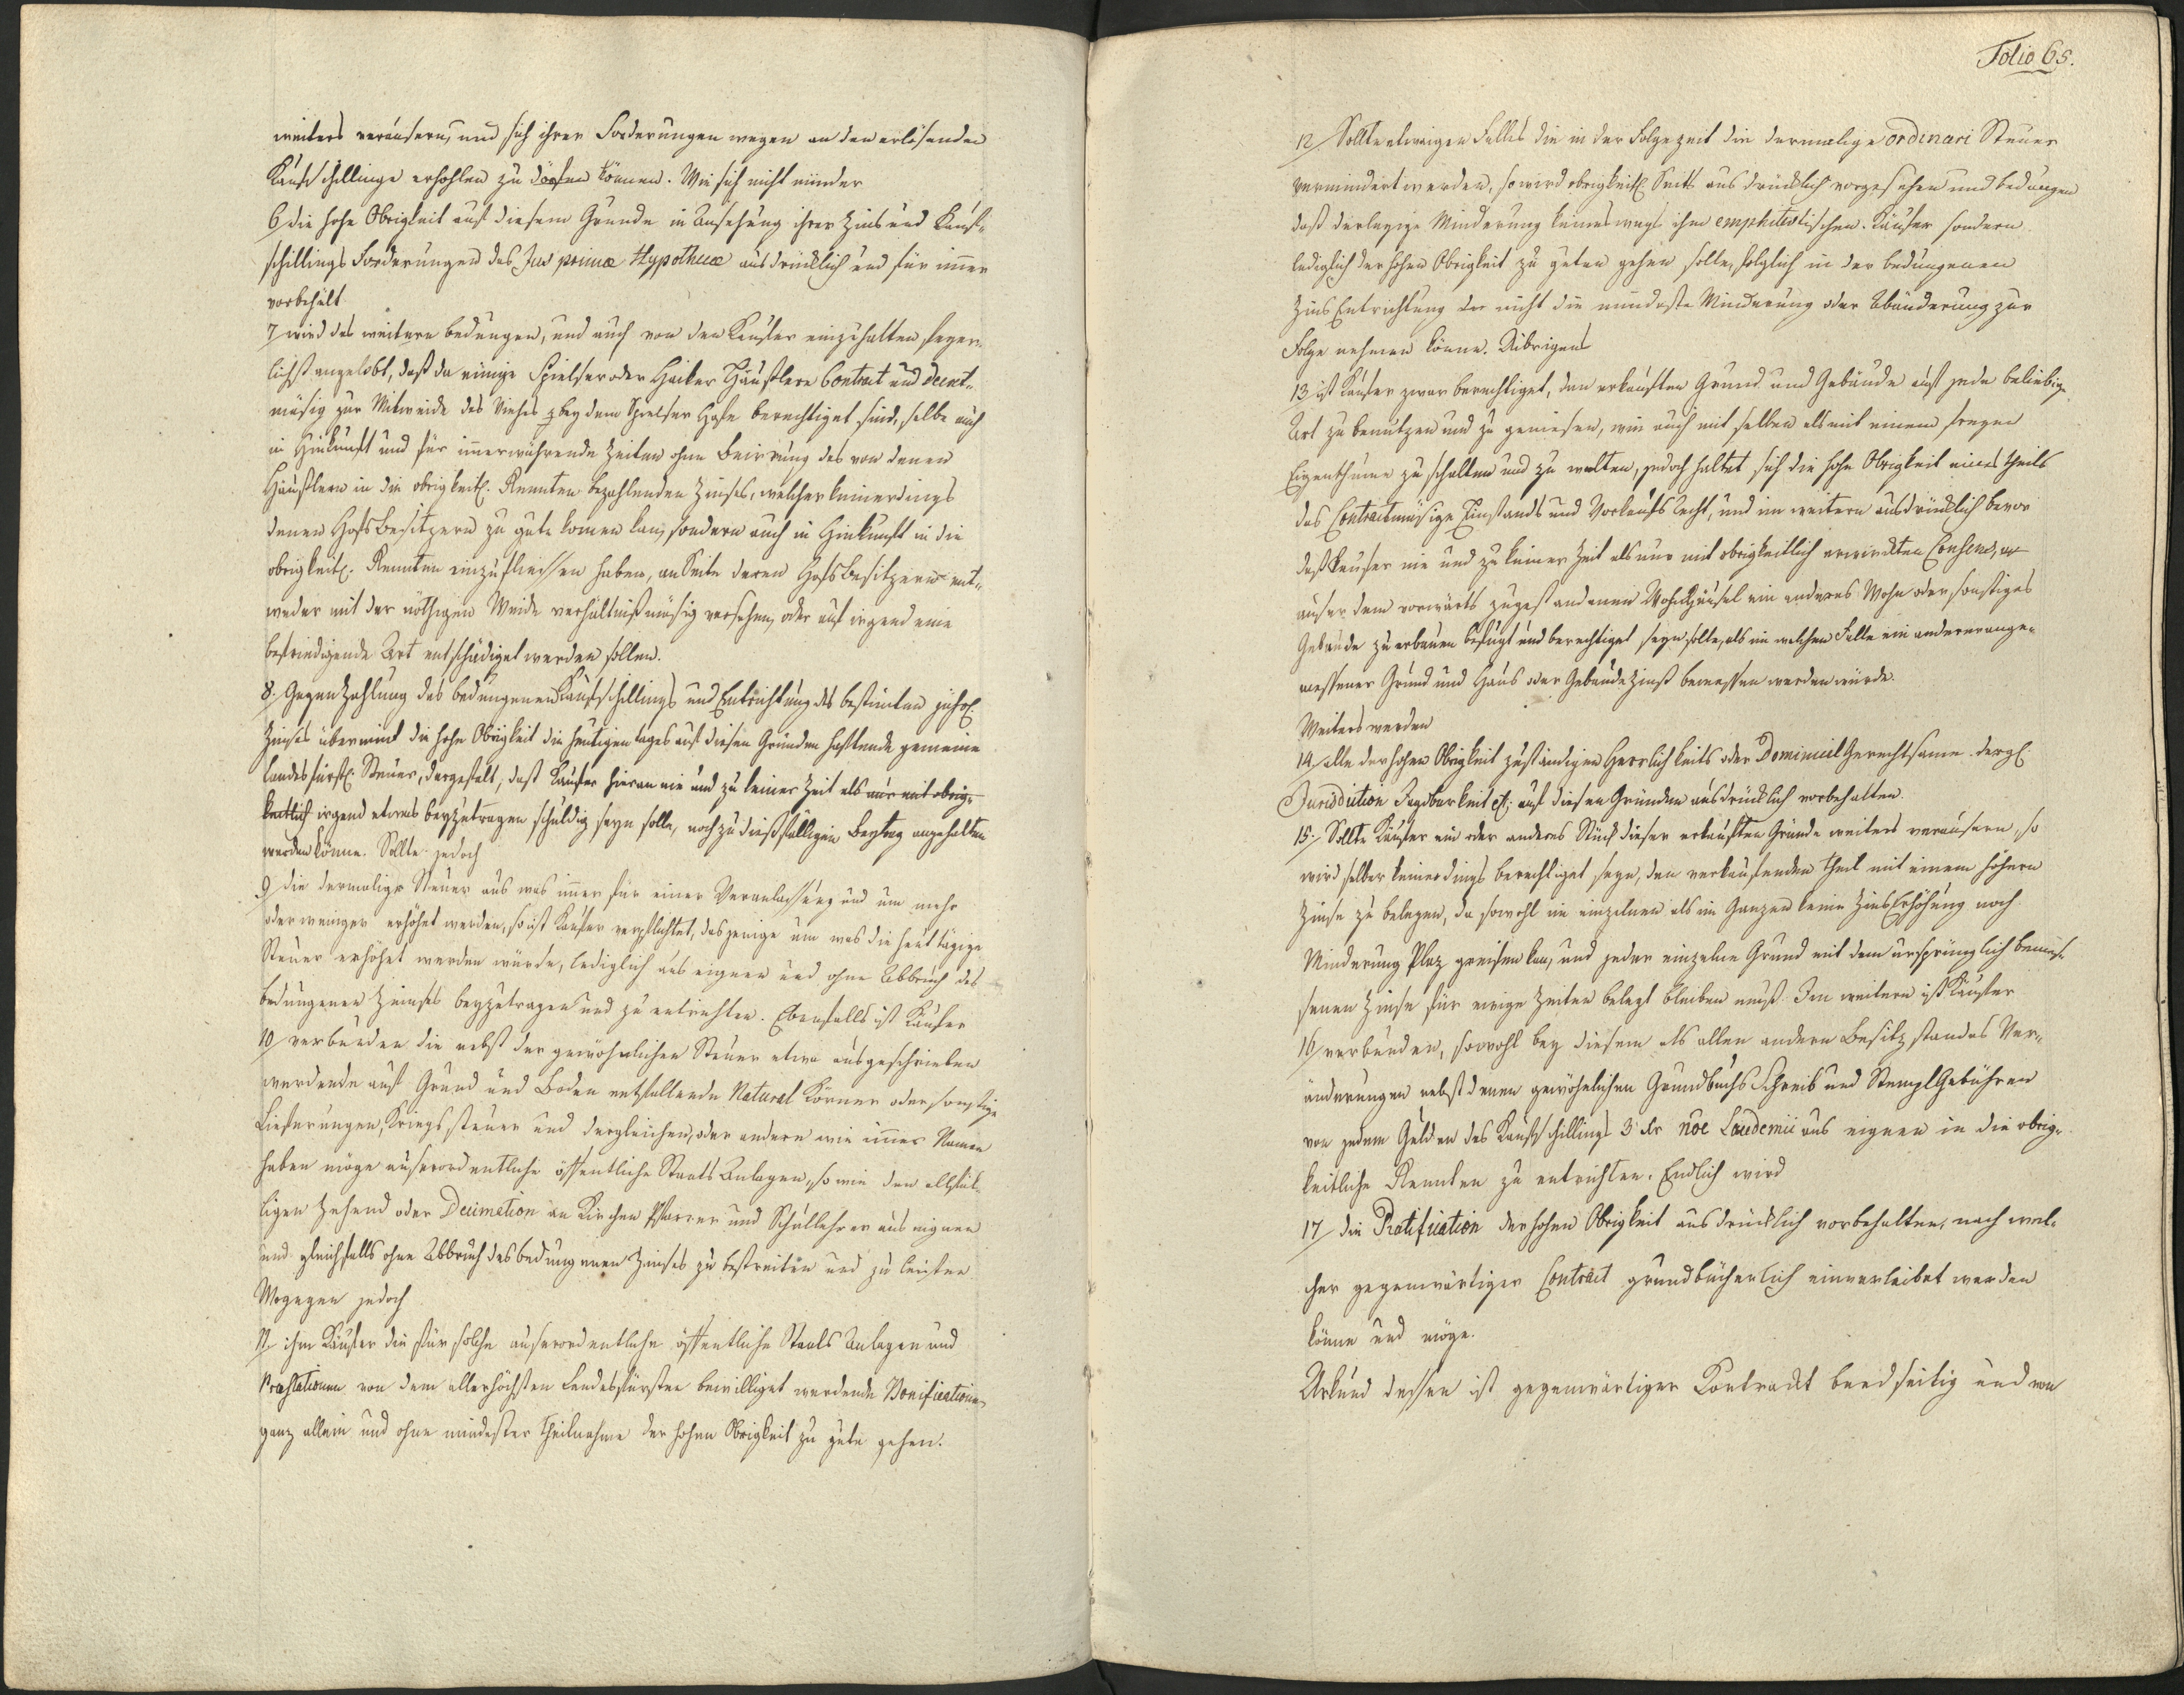 weiters veräusern, und sich ihrer Forderungen wegen an den erlösenden
Kaufschillinge erhohlen zu dörfen können. Wie sich nicht minder
6 die hohe Obrigkeit auf diesem Grunde in Ansehung ihrer Zins und Kauf-
schillings Forderungen das Jus primæ Hypothecæ ausdrücklich und für imer
vorbehält
7 wird des weitern bedungen, und auch von dem Kaufer einzuhalten feyer-
lichst angelobt, daß da einige Spielser oder Haiker Häuslere Contract und decret-
mäsig zur Mitweide des Viehes bey dem Spielser Hofe berechtiget sind, selbe auch
in Hinkunft und für imerwährende Zeiten ohne Beirrung des von denen
Häuslern in die obrigkeitl. Rennten bezahlenden Zinses, welcher keinerdings
denen Hofsbesitzern zu gute komen kan, sondern auch in Hinkunft in die
obrigkeitl. Rennten einzufliessen haben, an Seite deren Hofsbesitzern ent-
weder mit der nöthigen Weide verhältnißmäsig versehen, oder auf irgend eine
befriedigende Art entschädiget werden sollen.
8. Gegen Zahlung des bedungenen Kaufschillings und Entrichtung des bestimten jährl.
Zinses übernimt die hohe Obrigkeit die heutigen tages auf diesen Gründen haftende gemeine
landesfürstl. Steuer, dergestalt, daß Kaufer hieran nie und zu keiner Zeit als nur mit obrig-
keitlich irgend etwas beyzutragen schuldig seyn solle, noch zu dießfälligen Beytrag angehalten
werden könne. Sollte jedoch
9 die dermalige Steuer aus was imer für einer Veranlassung und um mehr
oder weniger erhöhet werden, so ist Kaufer verpflichtet, dasjenige um was die heut tägige
Steuer erhöhet werden würde, lediglich aus eignen und ohne Abbruch des
bedungenen Zinses beyzutragen und zu entrichten. Ebenfalls ist Kaufer
10 verbunden die nebst der gewöhnlichen Steuer etwa ausgeschrieben
werdende auf Grund und Boden entfallende Natural Körner oder sonstige
Lieferungen, Kriegssteuer und dergleichen, oder andere wie imer Namen
haben möge auserordentliche öffentliche Staats Anlagen, so wie den allfäl-
ligen Zehend oder Decimation an Kirchen Pfarrer und Schullehrer aus eignen
und gleichfalls ohne Abbruch des bedungenen Zinses zu bestreiten und zu leisten
Wogegen jedoch
11 ihm Käufer die für solche auserordentliche öffentliche Staats Anlagen und
Præstationen von dem allerhöchsten Landesfürsten bewilliget werdende Bonificationen
ganz allein und ohne mindester Theilnahme der hohen Obrigkeit zu gute gehen.
Folio 65.
12/ Sollte etwaigen Falles die in der Folgezeit die dermalige ordinari Steuer
vermindert werden, so wird obrigkeitl. Seits ausdrücklich vorgesehen und bedungen
daß derleyige Minderung keineswegs ihm emphitevtischen Käufer sondern
lediglich der hohen Obrigkeit zu guten gehen solle, folglich in der bedungenen
Zins Entrichtung der nicht die mindeste Minderung oder Abänderung zur
Folge nehmen könne. Uibrigens
13 ist Kaufer zwar berechtiget, den erkauften Grund und Gebäude auf jede beliebige
Art zu benutzen und zu geniesen, wie auch mit selben als mit einem freyen
Eigenthume zu schalten und zu walten, jedoch haltet sich die hohe Obrigkeit eines theils
das Contractmäsige Einstands und Vorkaufs Recht, und im weitern ausdrücklich bevor
daß Kaufer nie und zu keiner Zeit als nur mit obrigkeitlich erwirckten Consens,
auser dem vorwärts zugestandenen Wohnhäusel ein anderes Wohn oder sonstiges
Gebäude zu erbauen befugt und berechtiget seyn solle, als im welchen Falle ein anderer ange-
messener Grund und Haus oder Gebäude Zinß bemessen werden würde.
Weiters werden
14/ alle der hohen Obrigkeit zuständigen Herrlichkeits oder Dominical Gerechtsame dergl.
Jurisdiction Jagdbarkeit etc. auf diesen Gründen ausdrücklich vorbehalten.
15. Sollte Käufer ein oder anderes Stück dieser erkauften Gründe weiters veräusern, so
wird selber keinerdings berechtiget seyn, den verkaufenden Theil mit einem höhern
Zinse zu belegen, da sowohl im einzelnen als im Ganzen keine Zins Erhöhung noch
Minderung Plaz greifen kan, und jeder einzelne Grund mit dem ursprünglich bemes-
senen Zinse für ewige Zeiten belegt bleiben muß. Im weitern ist Käufer
16/ verbunden, sowohl bey diesem als allen andern Besitzstandes Ver-
änderungen nebst denen gewöhnlichen Grundbuchs Schreib und Stempl Gebühren
von jedem Gulden des Kaufschillings 3 kr noe Laudemii aus eignen in die obrig-
keitliche Rennten zu entrichten. Endlich wird
17/ die Ratification der hohen Obrigkeit ausdrücklich vorbehalten, nach wel-
cher gegenwärtiger Contract grundbücherlich einverleibet werden
könne und möge.
Urkund dessen ist gegenwärtiger Kontrackt beedseitig und von